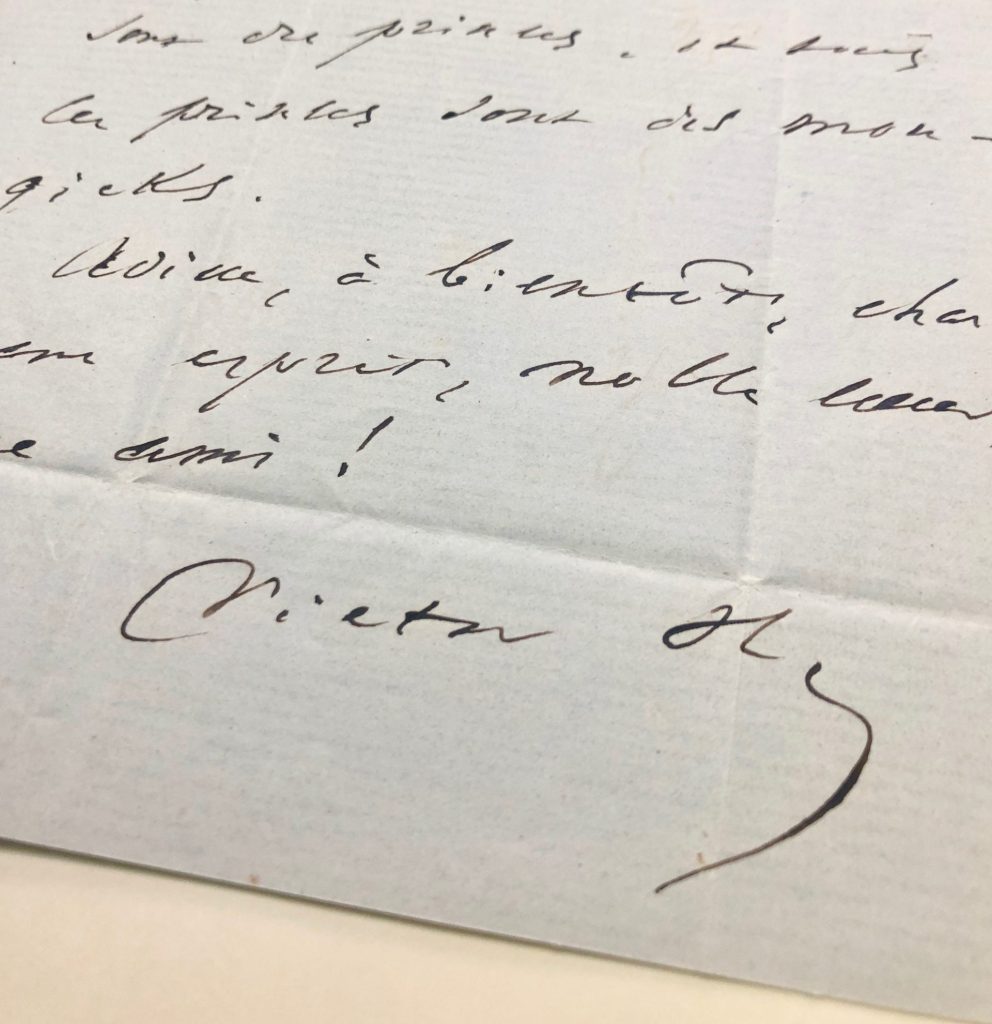 sont des princes, et tous
les princes sont des mou-
gicks.
Adieu, à bientôt, char
esprit, noble cœur,
ami !
Victor H.